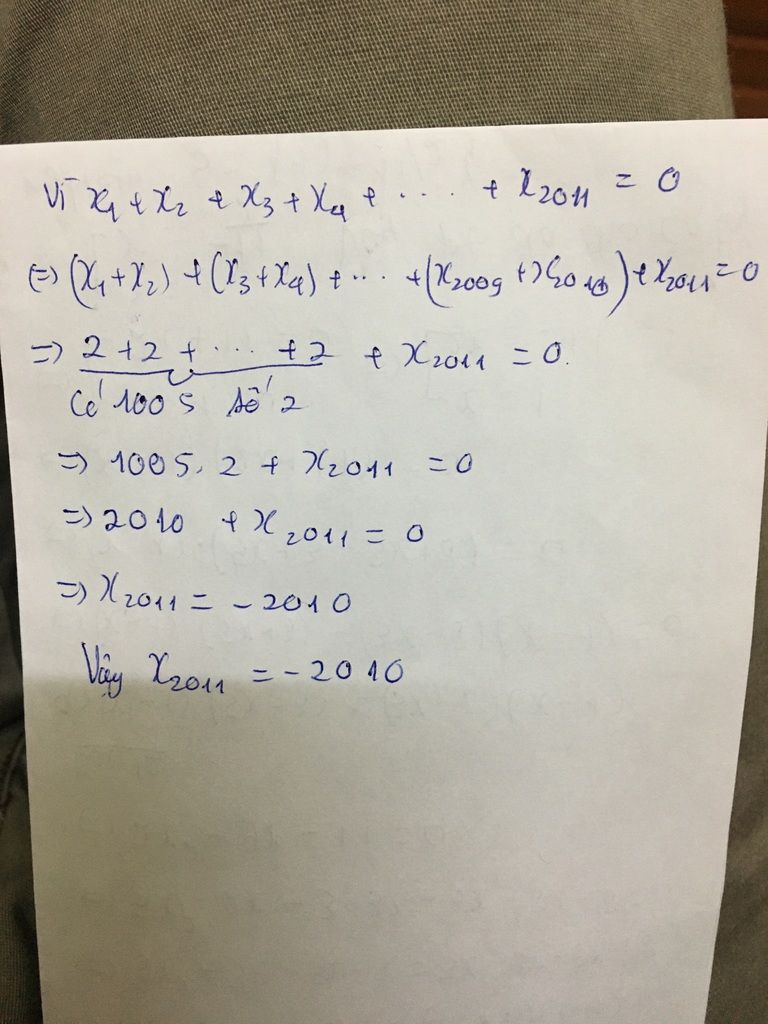 Vì x₁ + x₂ + x₃ + x₄ + .... + x₂₀₁₁ = 0
(=) (x₁ + x₂) + (x₃ + x₄) + ... + (x₂₀₀₉ + x₂₀₁₀) + x₂₀₁₁ = 0
=) 2 + 2 + ... + 2 + x₂₀₁₁ = 0.
Có 1005 số 2
=) 1005. 2 + x₂₀₁₁ = 0
=) 2010 + x₂₀₁₁ = 0
=) x₂₀₁₁ = - 2010
Vậy x₂₀₁₁ = - 2010